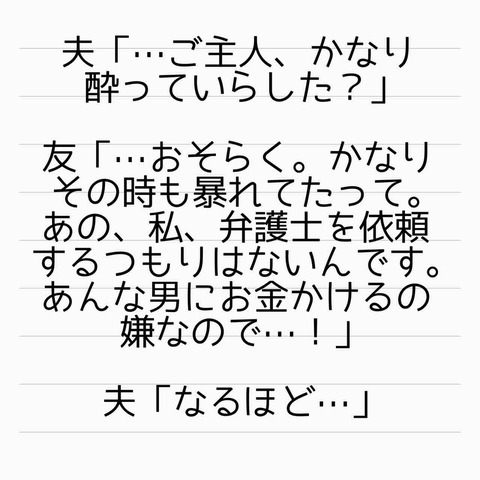 夫「…ご主人、かなり
酔っていらした？」
友「…おそらく。かなり
その時も暴れてたって。
あの、私、弁護士を依頼
するつもりはないんです。
あんな男にお金かけるの
嫌なので…！」
夫「なるほど…」